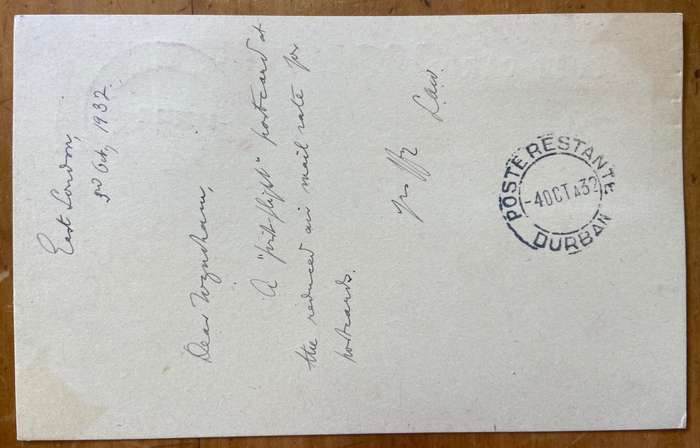 East London,
3rd Oct, 1932.
Dear Wyndham,
A "first flight" postcard at
the reduced air mail rate for
postcards.
Yrs
Law.
POSTE RESTANTE
-4OCTA32
DURBAN